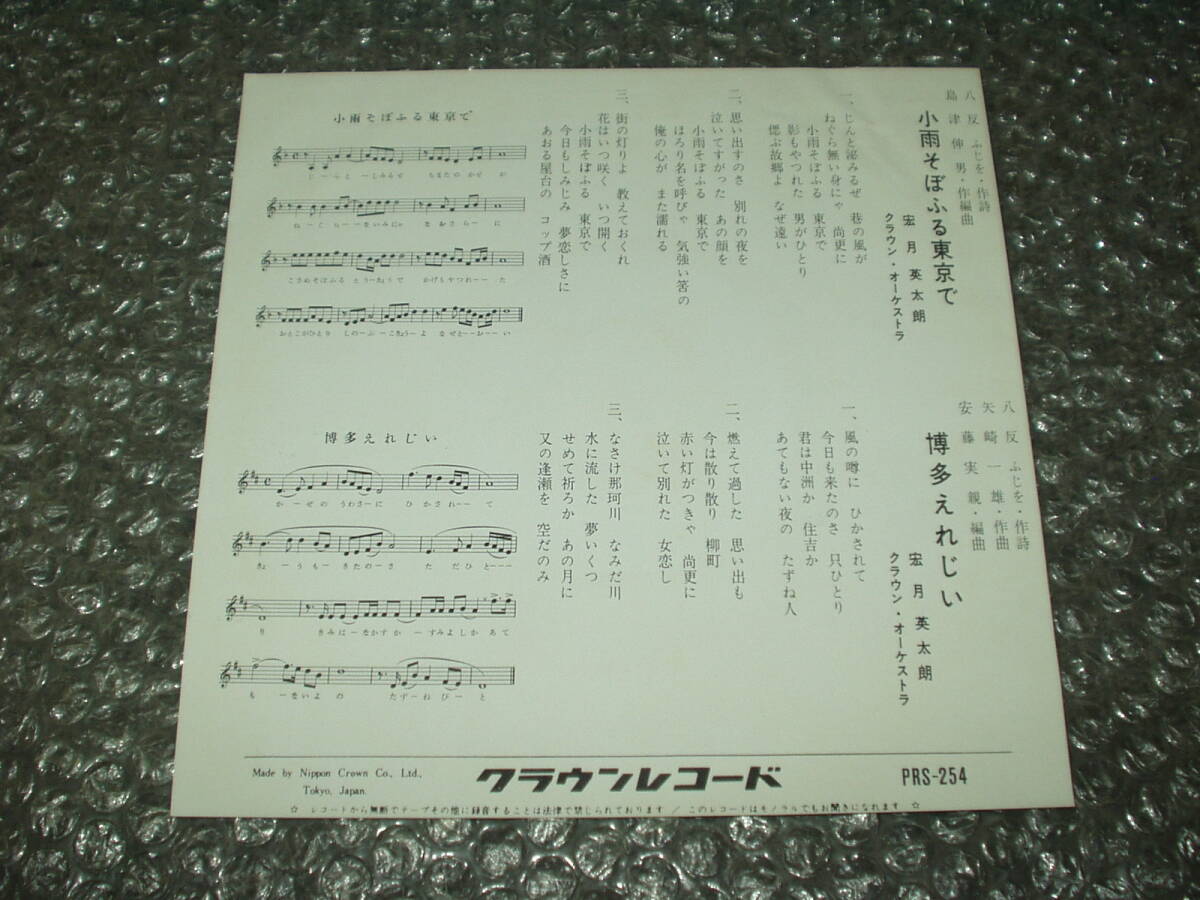 八反ふじを・作詩
島津伸男・作編曲
小雨そぼふる東京で
宏月英太朗
クラウン・オーケストラ
一、じんと泌みるぜ 巷の風が
ねぐら無い身にゃ 尚更に
小雨そぼふる 東京で
影もやつれた 男がひとり
偲ぶ故郷よ なぜ遠い
二、思い出すのさ 別れの夜を
泣いてすがった あの顔を
小雨そぼふる 東京で
ほろり名を呼びゃ 気強い筈の
俺の心が また濡れる
三、街の灯りよ 教えておくれ
花はいつ咲く いつ開く
小雨そぼふる 東京で
今日もしみじみ 夢恋しさに
あおる屋台の コップ酒
小雨そぼふる東京で
じーんとーしみるぜ ちまたのかぜが
ねーぐらーーないみにゃ なおさらーに
こさめそぼふる とうーきょうで かげもやつれーーた
おとこがひとり しのーぶーこきょうーよ なぜとーおーい
八反ふじを・作詩
矢崎一雄・作曲
安藤実親・編曲
博多えれじい
宏月英太朗
クラウン・オーケストラ
一、風の噂に ひかされて
今日も来たのさ 只ひとり
君は中洲か 住吉か
あてもない夜の たずね人
二、燃えて過した 思い出も
今は散り散り 柳町
赤い灯がつきゃ 尚更に
泣いて別れた 女恋し
三、なさけ那珂川 なみだ川
水に流した 夢いくつ
せめて祈ろか あの月に
又の逢瀬を 空だのみ
博多えれじい
かーぜのうわさーに ひかされーーて
きょーうもーきたのーさ ただひとーーー
り きみにーなかすか ーすみよしか あて
も ーないよの たずーねびーと
Made by Nippon Crown Co., Ltd.,
Tokyo, Japan.
クラウンレコード
PRS-254
☆ レコードから無断でテープその他に録音することは法律で禁じられております / このレコードはモノラルでもお聞きになれます ☆